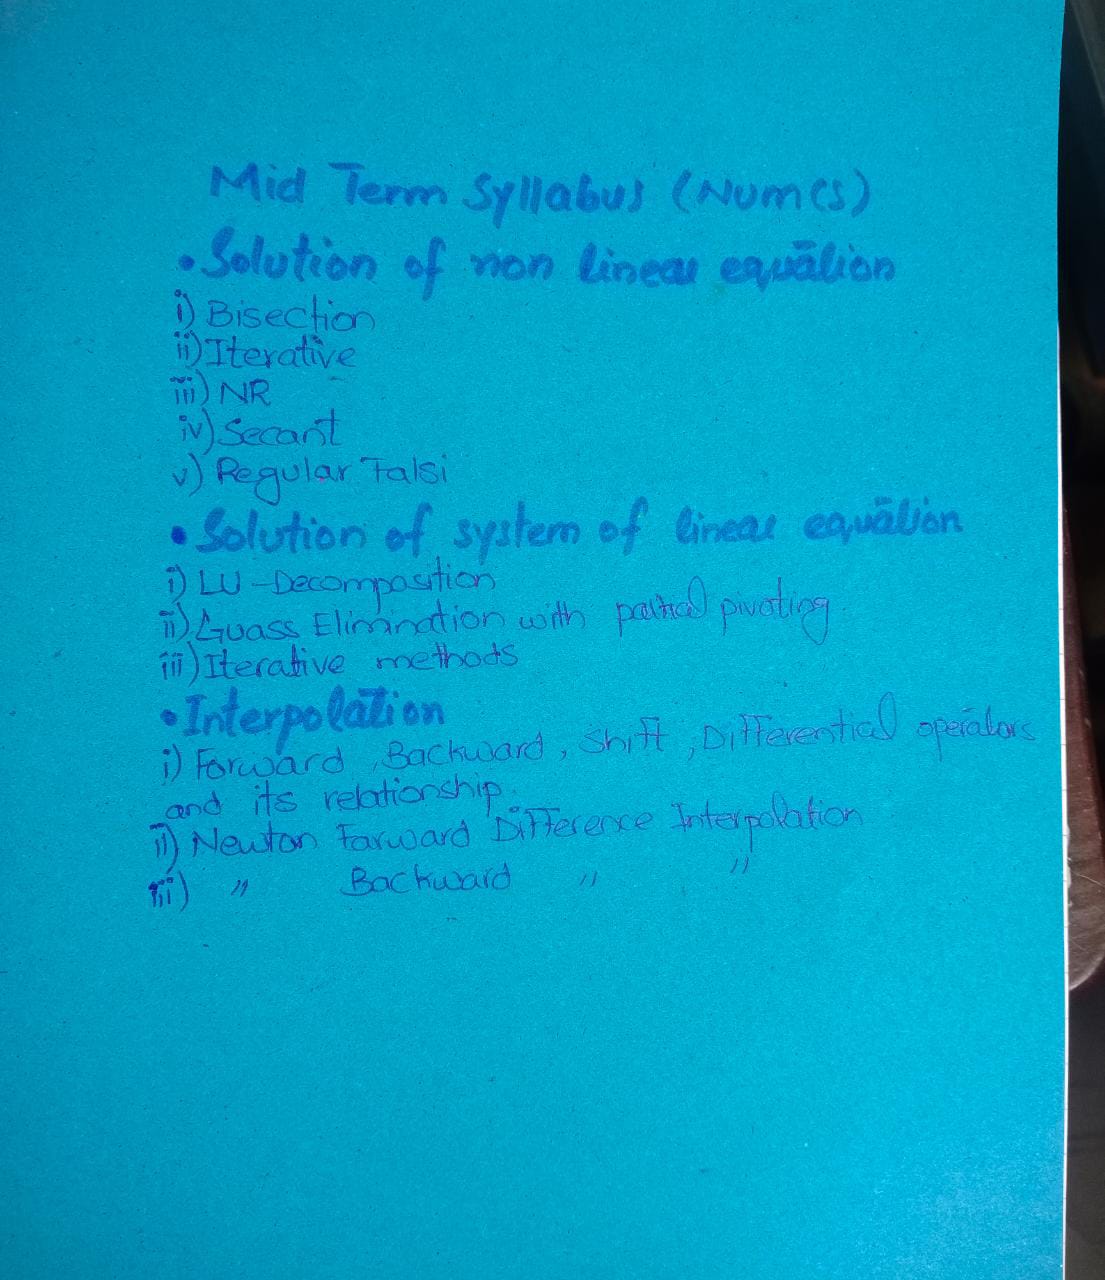 Mid Term Syllabus (Num CS)
• Solution of non linear equation
i) Bisection
ii) Iterative
iii) NR
iv) Secant
v) Regular Falsi
• Solution of system of linear equation
i) LU-Decomposition
ii) Guass Elimination with partical pivoting.
iii) Iterative methods
• Interpolation
i) Forward, Backward, Shift, Differential operators
and its relationship.
ii) Newton Farward Difference Interpolation
iii) " Backward " "